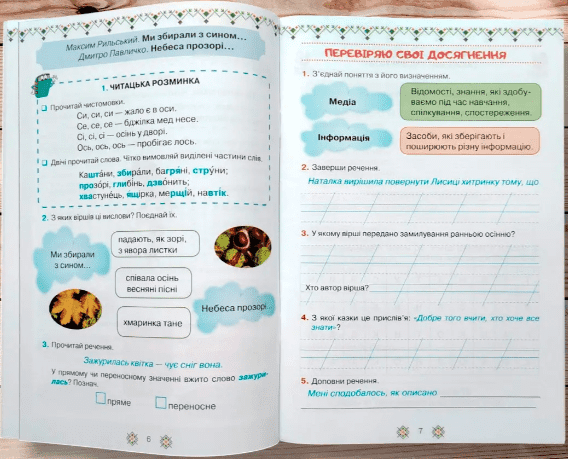 Максим Рильський. Ми збирали з сином...
Дмитро Павличко. Небеса прозорі...
1. ЧИТАЦЬКА РОЗМИНКА
Прочитай чистомовки.
Си, си, си — жало є в оси.
Се, се, се — бджілка мед несе.
Сі, сі, сі — осінь у дворі.
Ось, ось, ось — пробігає лось.
Двічі прочитай слова. Чітко вимовляй виділені частини слів.
Каштани, збирали, багряні, струни;
прозорі, глибінь, дзвонить;
хвастунець, ящірка, мерщій, навтік.
2. З яких віршів ці вислови? Поєднай їх.
Ми збирали
з сином...
падають, як зорі,
з явора листки
співала осінь
весняні пісні
Небеса прозорі...
хмаринка тане
3. Прочитай речення.
Зажурилась квітка — чує сніг вона.
У прямому чи переносному значенні вжито слово зажури-
лась? Познач.
пряме
переносне
6
ПЕРЕВІРЯЮ СВОЇ ДОСЯГНЕННЯ
1. З'єднай поняття з його визначенням.
Медіа
Відомості, знання, які здобу-
ваємо під час навчання,
спілкування, спостереження.
Інформація
Засоби, які зберігають і
поширюють різну інформацію.
2. Заверши речення.
Наталка вирішила повернути Лисиці хитринку тому, що
3. У якому вірші передано замилування ранньою осінню?
Хто автор вірша?
4. З якої казки це прислів'я: «Добре того вчити, хто хоче все
знати»?
5. Доповни речення.
Мені сподобалось, як описано
7